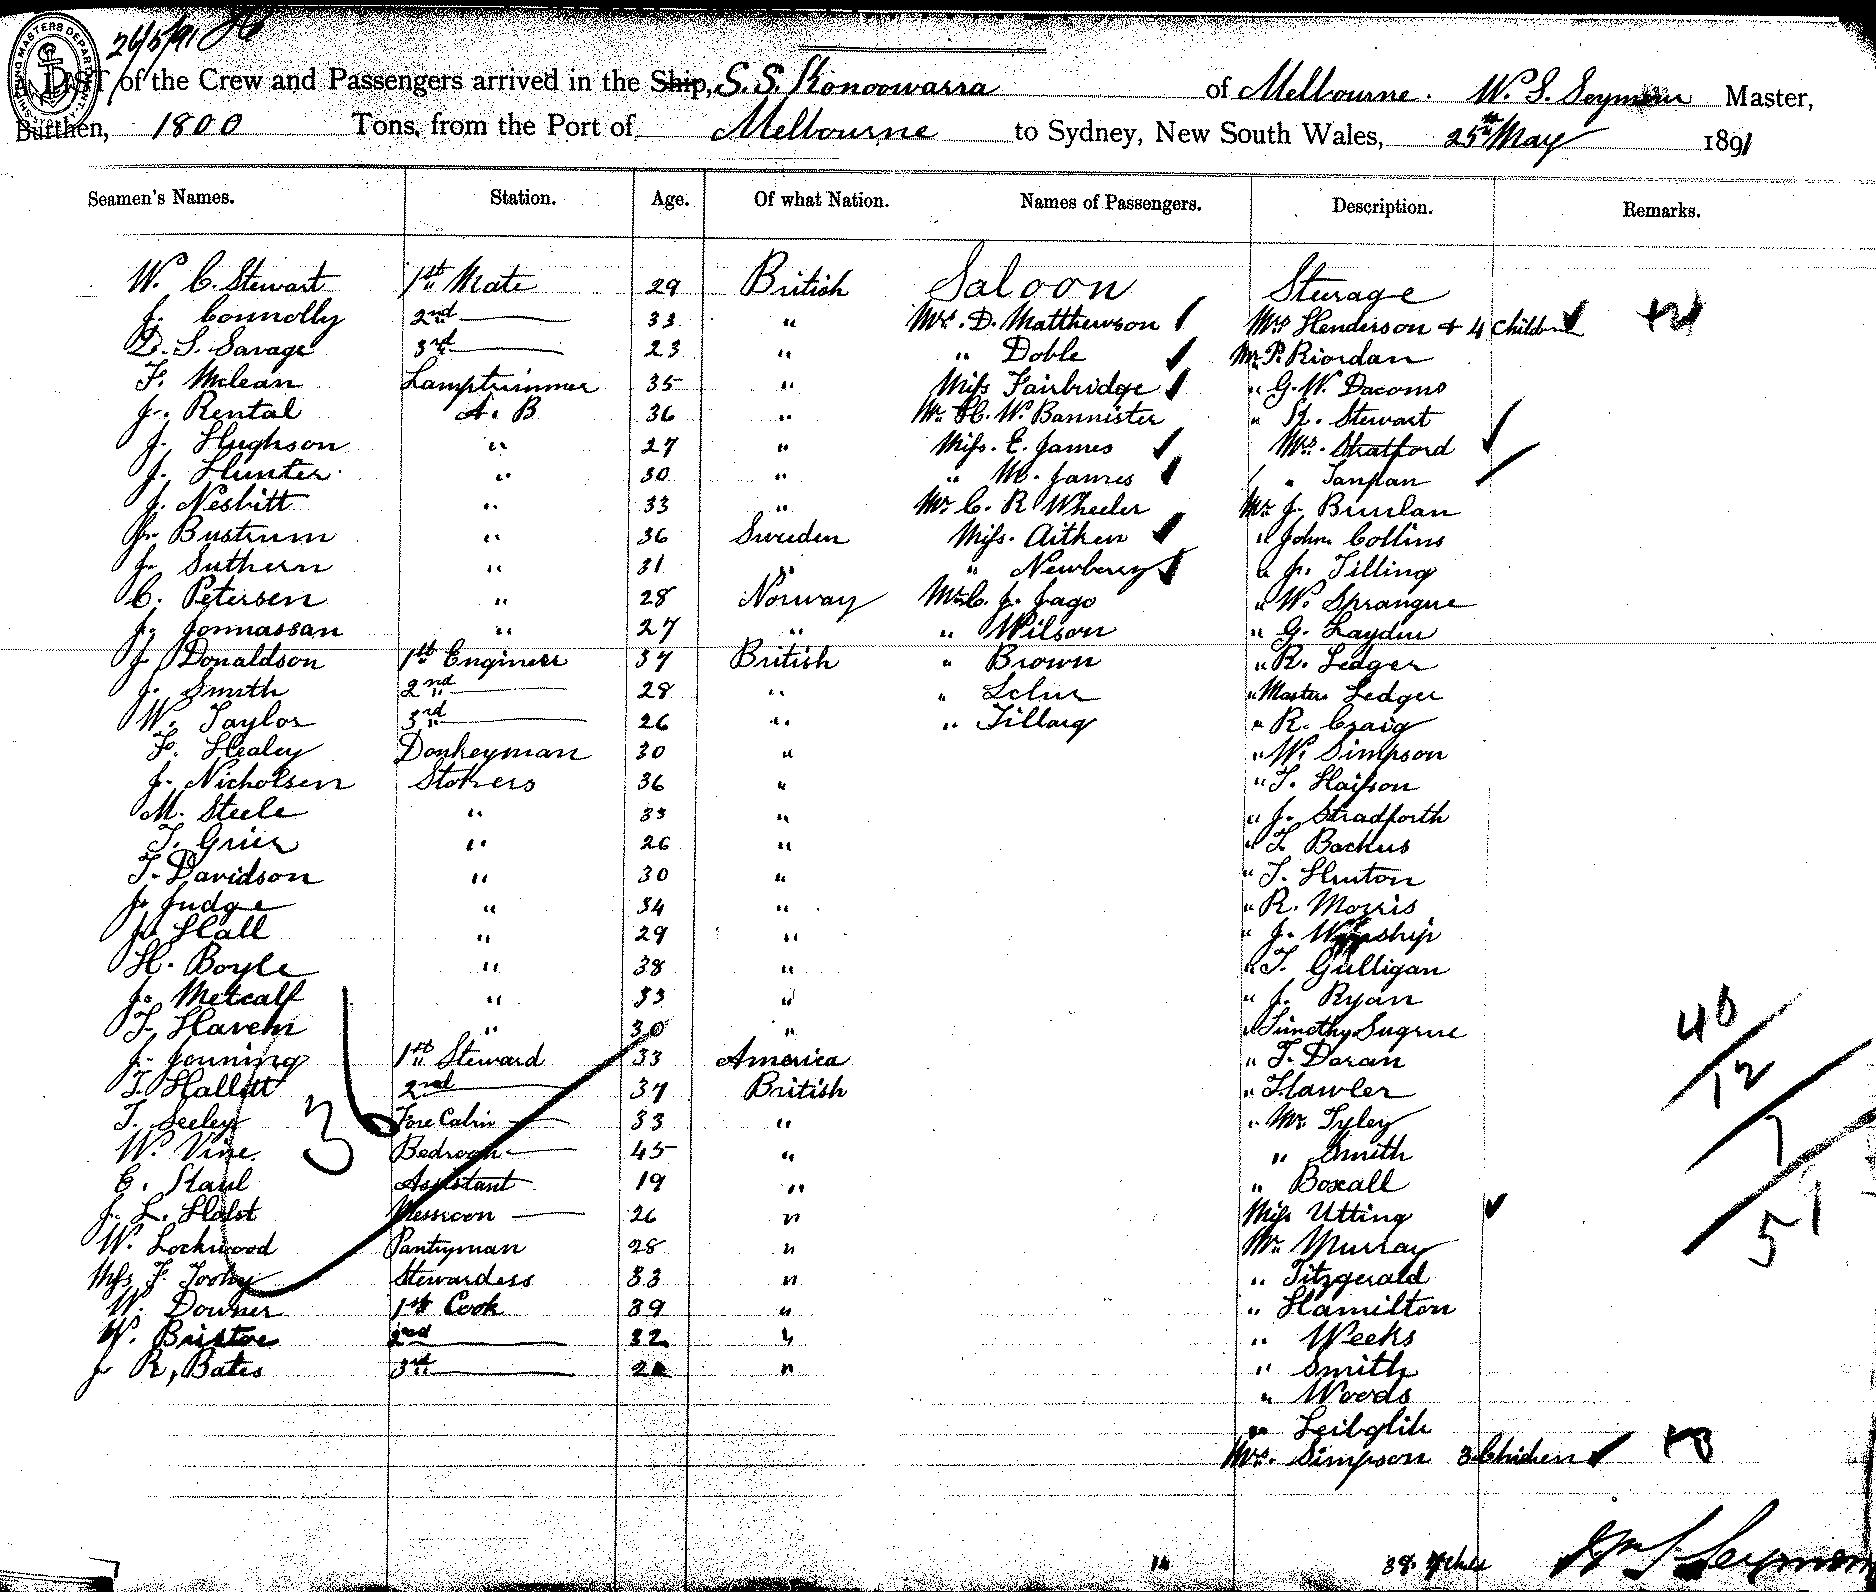 26/5/91
SHIPPING MASTERS DEPARTMENT
A LIST of the Crew and Passengers arrived in the Ship, S.S. Konoowarra of Melbourne. W. S. Seymour Master,
Burthen, 1800 Tons, from the Port of Melbourne to Sydney, New South Wales, 25th May 1891
Seamen's Names. Station. Age. Of what Nation. Names of Passengers. Description. Remarks.
W. C. Stewart 1st Mate 29 British Saloon Sturage
J. Connolly 2nd — 33 " Mrs. D. Matthewson Mrs Henderson + 4 Children +4
D. S. Savage 3rd — 23 " " Doble Mr P. Riordan
F. Mclean Lamptrimmer 35 " Miss Fairbridge " G. W. Dacomo
J. Rental A. B 36 " Mr H. W. Bannister " R. Stewart
J. Hughson " 27 " Miss. E. James Mrs. Stratford
J. Hunter " 30 " " M. James " Tanpan
J. Nesbitt " 33 " Mr C. R Wheeler Mr J. Brinlan
J. Bustrum " 36 Sweden Miss. Aitken " John Collins
J. Suthern " 31 " " Newberry " J. Tilling
C. Petersen " 28 Norway Mr C. J. Jago " W. Sprangue
J. Jonnassan " 27 " " Wilson " G. Laydin
J. Donaldson 1st Engineer 37 British " Brown " R. Ledger
J. Smith 2nd — 28 " " " Master Ledger
W. Taylor 3rd — 26 " " Tillarg " R. Craig
F. Healey Donkeyman 30 " " W. Simpson
J. Nicholsen Stokers 36 " " T. Haisson
M. Steele " 33 " " J. Stradforth
T. Grier " 26 " " T. Backus
T. Davidson " 30 " " T. Hinton
J. Judge " 34 " " R. Morris
J. Hall " 29 " " J. Winship
H. Boyle " 38 " " T. Gulligan
J. Metcalf " 33 " " J. Ryan
T. Havern " 30 " " Timothy Sugrue
J. Jonning 1st Steward 33 America " T. Doran
T. Hallett 2nd — 37 British " T. Lawler
T. Seeley Fore Cabin — 33 " " Mr Tyley
W. Vine Bedroom — 45 " " Smith
C. Kaul Assistant 19 " " Boxall
J. L. Holst Messroom — 26 " Miss Utting
W. Lockwood Pantryman 28 " Mr Murray
Miss F. Toohy Stewardess 33 " " Fitzgerald
W. Downer 1st Cook 39 " " Hamilton
W. Bristoe 2nd — 32 " " Weeks
J R, Bates 3rd — " " Smith
" Woods
" Leibglih
Mrs. Simpson 3 Children +3
36
40
12
7
51
14 38. 7 chld Wm S Seymour